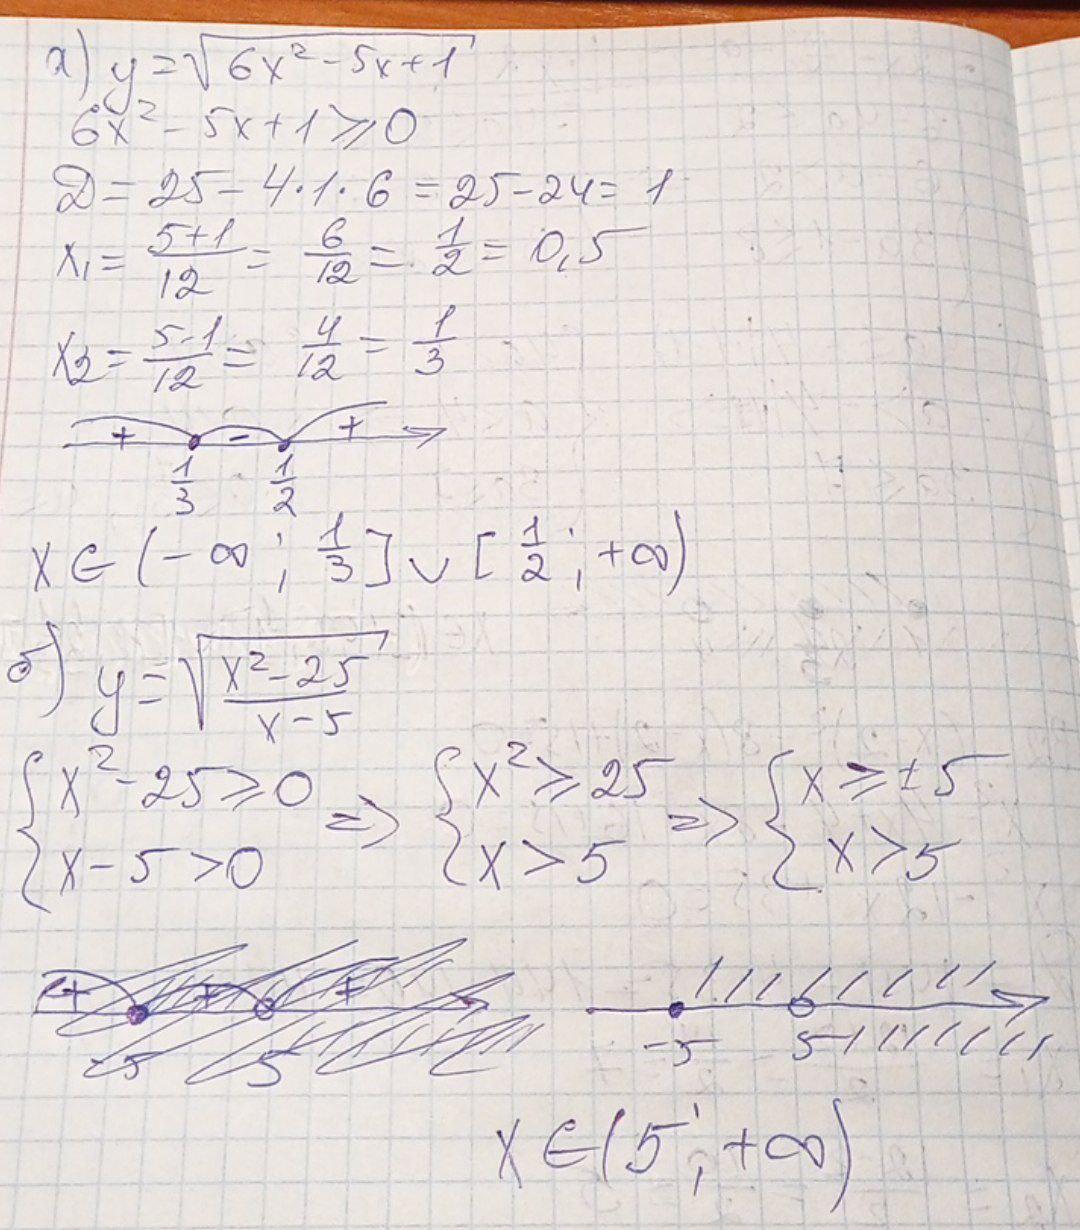 а) y = √(6x² - 5x + 1)
6x² - 5x + 1 ≥ 0
D = 25 - 4·1·6 = 25 - 24 = 1
x₁ = (5+1)/12 = 6/12 = 1/2 = 0,5
x₂ = (5-1)/12 = 4/12 = 1/3
+ - +
1/3 1/2
x ∈ (-∞; 1/3] ∪ [1/2; +∞)
б) y = √((x² - 25)/(x - 5))
{x² - 25 ≥ 0 => {x² ≥ 25 => {x ≥ ±5
{x - 5 > 0 {x > 5 {x > 5
+ + +
-5 5 -5 5
x ∈ (5; +∞)